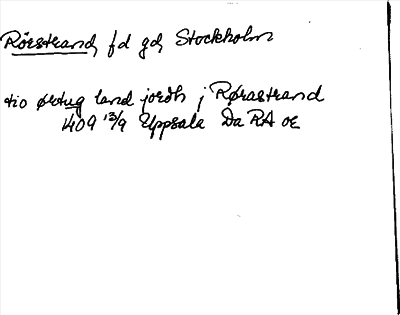 Rörstrand, f d gd, Stockholm
tio ørtug land jordh j Rørastrand
1409 13/9 Uppsala Da RA oe